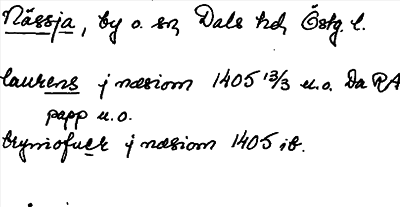 Nässja, by o. sn Dals hd, Östg. l.
laurens j næsiom 1405 13/3 u.o. Da RA
papp u.o.
brynioFuer j næsiom 1405 ib.